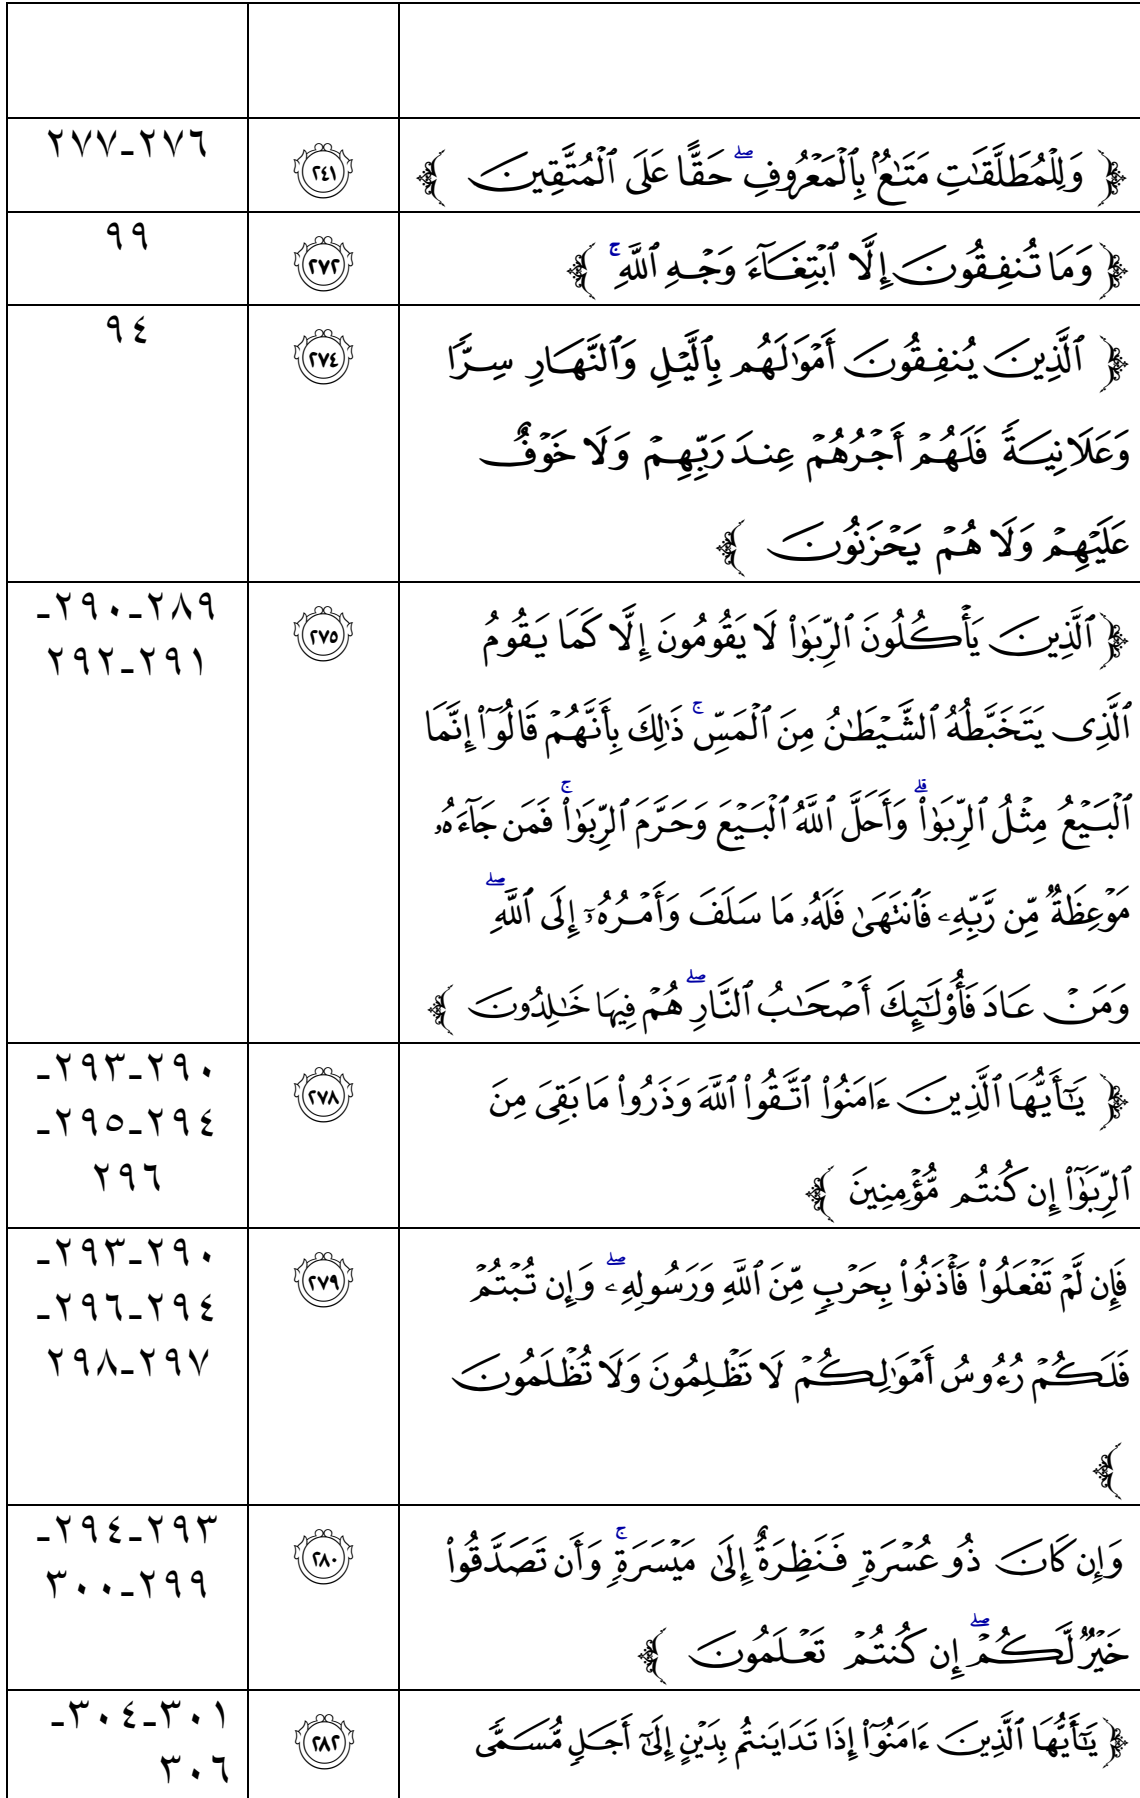 ﴿ وَلِلْمُطَلَّقَٰتِ مَتَٰعٌۢ بِٱلْمَعْرُوفِ ۖ حَقًّا عَلَى ٱلْمُتَّقِينَ ﴾ ٢٤١ ٢٧٦ـ٢٧٧
﴿ وَمَا تُنفِقُونَ إِلَّا ٱبْتِغَآءَ وَجْهِ ٱللَّهِ ۚ ﴾ ٢٧٢ ٩٩
﴿ ٱلَّذِينَ يُنفِقُونَ أَمْوَٰلَهُم بِٱلَّيْلِ وَٱلنَّهَارِ سِرًّا ٢٧٤ ٩٤
وَعَلَانِيَةً فَلَهُمْ أَجْرُهُمْ عِندَ رَبِّهِمْ وَلَا خَوْفٌ
عَلَيْهِمْ وَلَا هُمْ يَحْزَنُونَ ﴾
﴿ ٱلَّذِينَ يَأْكُلُونَ ٱلرِّبَوٰا۟ لَا يَقُومُونَ إِلَّا كَمَا يَقُومُ ٢٧٥ ٢٨٩ـ٢٩٠ـ
ٱلَّذِى يَتَخَبَّطُهُ ٱلشَّيْطَٰنُ مِنَ ٱلْمَسِّ ۚ ذَٰلِكَ بِأَنَّهُمْ قَالُوٓا۟ إِنَّمَا ٢٩١ـ٢٩٢
ٱلْبَيْعُ مِثْلُ ٱلرِّبَوٰا۟ ۗ وَأَحَلَّ ٱللَّهُ ٱلْبَيْعَ وَحَرَّمَ ٱلرِّبَوٰا۟ ۚ فَمَن جَآءَهُۥ
مَوْعِظَةٌ مِّن رَّبِّهِۦ فَٱنتَهَىٰ فَلَهُۥ مَا سَلَفَ وَأَمْرُهُۥٓ إِلَى ٱللَّهِ ۖ
وَمَنْ عَادَ فَأُو۟لَٰٓئِكَ أَصْحَٰبُ ٱلنَّارِ ۖ هُمْ فِيهَا خَٰلِدُونَ ﴾
﴿ يَٰٓأَيُّهَا ٱلَّذِينَ ءَامَنُوا۟ ٱتَّقُوا۟ ٱللَّهَ وَذَرُوا۟ مَا بَقِىَ مِنَ ٢٧٨ ٢٩٠ـ٢٩٣ـ
ٱلرِّبَوٰٓا۟ إِن كُنتُم مُّؤْمِنِينَ ﴾ ٢٩٤ـ٢٩٥ـ
٢٩٦
فَإِن لَّمْ تَفْعَلُوا۟ فَأْذَنُوا۟ بِحَرْبٍ مِّنَ ٱللَّهِ وَرَسُولِهِۦ ۖ وَإِن تُبْتُمْ ٢٧٩ ٢٩٠ـ٢٩٣ـ
فَلَكُمْ رُءُوسُ أَمْوَٰلِكُمْ لَا تَظْلِمُونَ وَلَا تُظْلَمُونَ ٢٩٤ـ٢٩٦ـ
﴾ ٢٩٧ـ٢٩٨
وَإِن كَانَ ذُو عُسْرَةٍ فَنَظِرَةٌ إِلَىٰ مَيْسَرَةٍ ۚ وَأَن تَصَدَّقُوا۟ ٢٨٠ ٢٩٣ـ٢٩٤ـ
خَيْرٌ لَّكُمْ ۖ إِن كُنتُمْ تَعْلَمُونَ ﴾ ٢٩٩ـ٣٠٠
﴿ يَٰٓأَيُّهَا ٱلَّذِينَ ءَامَنُوٓا۟ إِذَا تَدَايَنتُم بِدَيْنٍ إِلَىٰٓ أَجَلٍ مُّسَمًّى ٢٨٢ ٣٠١ـ٣٠٤ـ
٣٠٦